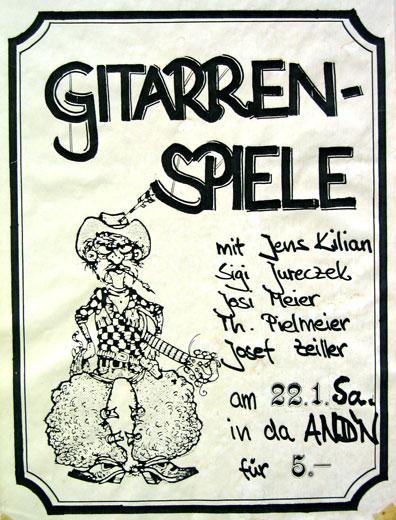 GITARREN-
SPIELE
mit Jens Kilian
Sigi Jureczek
Josi Meier
Th. Pielmeier
Josef Zeiller
am 22.1. Sa.
in da
für 5.-